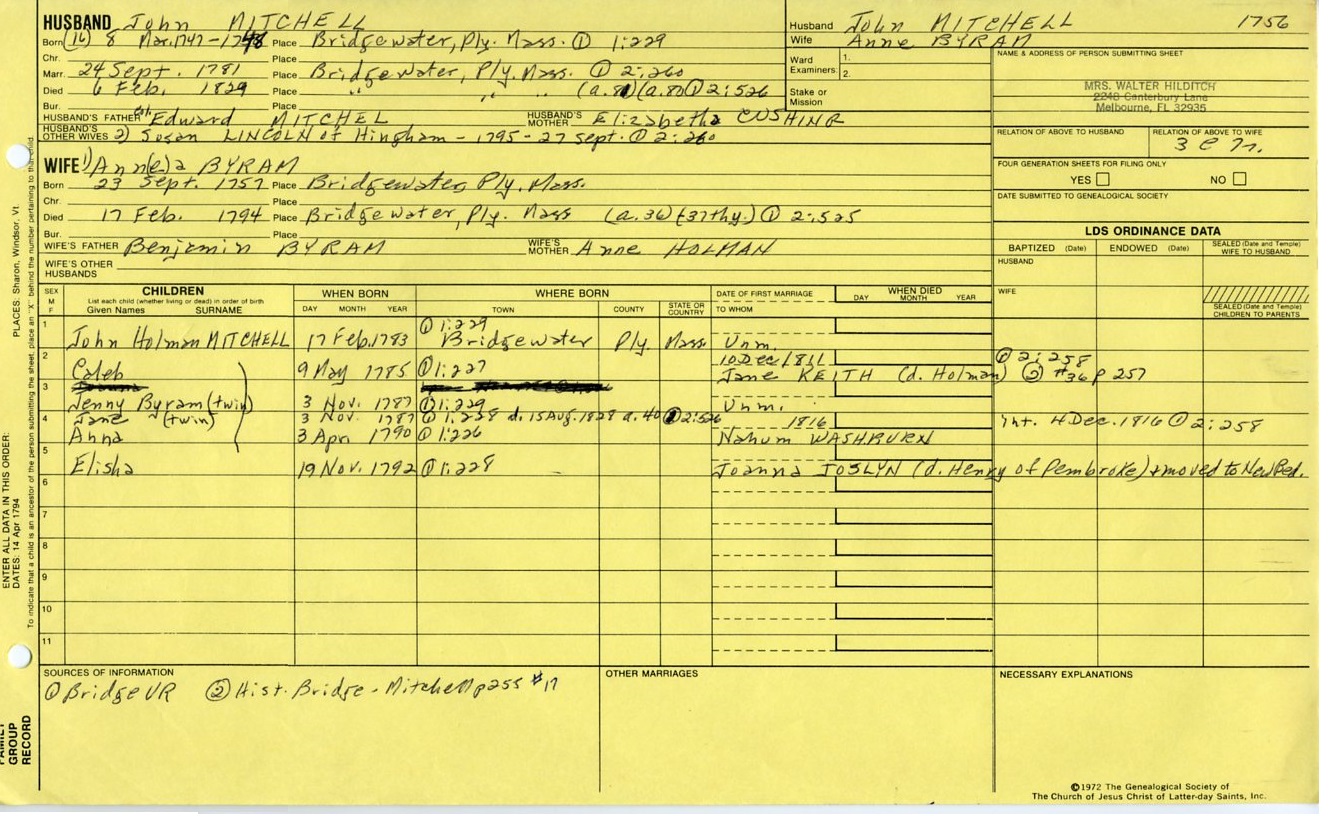 HUSBAND John MITCHELL
Born (16) 8 Mar. 1747-1748 Place Bridgewater, Ply. Mass. ① 1:229
Chr. Place
Marr. 24 Sept. 1781 Place Bridgewater, Ply. Mass. ① 2:260
Died 6 Feb. 1829 Place " " (a. 81) (a. 80) ① 2:526
Bur. Place
HUSBAND'S FATHER Edward MITCHEL HUSBAND'S MOTHER Elizabetha CUSHING
HUSBAND'S OTHER WIVES 2) Susan LINCOLN of Hingham - 1795 - 27 Sept. ① 2:260
WIFE 1) Ann(e)a BYRAM
Born 23 Sept. 1757 Place Bridgewater, Ply. Mass.
Chr. Place
Died 17 Feb. 1794 Place Bridgewater, Ply. Mass (a. 36) (37thy.) ① 2:525
Bur. Place
WIFE'S FATHER Benjamin BYRAM WIFE'S MOTHER Anne HOLMAN
WIFE'S OTHER HUSBANDS
Husband John MITCHELL 1756
Wife Anne BYRAM
Ward Examiners: 1.
2.
Stake or Mission
NAME & ADDRESS OF PERSON SUBMITTING SHEET
MRS. WALTER HILDITCH
2248 Canterbury Lane
Melbourne, FL 32935
RELATION OF ABOVE TO HUSBAND RELATION OF ABOVE TO WIFE
3 C 7 r.
FOUR GENERATION SHEETS FOR FILING ONLY
YES NO
DATE SUBMITTED TO GENEALOGICAL SOCIETY
LDS ORDINANCE DATA
BAPTIZED (Date) ENDOWED (Date) SEALED (Date and Temple) WIFE TO HUSBAND
HUSBAND
WIFE
SEALED (Date and Temple) CHILDREN TO PARENTS
SEX M F CHILDREN WHEN BORN WHERE BORN DATE OF FIRST MARRIAGE WHEN DIED
List each child (whether living or dead) in order of birth
Given Names SURNAME DAY MONTH YEAR TOWN COUNTY STATE OR COUNTRY TO WHOM DAY MONTH YEAR
1 John Holman MITCHELL 17 Feb. 1783 ① 1:229 Bridgewater Ply. Mass Unm.
2 Caleb 9 May 1785 ① 1:227 10 Dec 1811 Jane KEITH (d. Holman) ① 2:258 ② #36 p 257
3 Jenny Byram (twin) 3 Nov. 1787 ① 1:229 Unm.
4 Jane (twin) 3 Nov. 1787 ① 1:228 d. 15 Aug. 1828 a. 40 ① 2:526
Anna 3 Apr. 1790 ① 1:226 1816 Nahum WASHBURN Int. 4 Dec. 1816 ① 2:258
5 Elisha 19 Nov. 1792 ① 1:228 Joanna JOSLYN (d. Henry of Pembroke) + moved to New Bed.
6
7
8
9
10
11
SOURCES OF INFORMATION
① Bridge VR ② Hist. Bridge - Mitchell p255 #17
OTHER MARRIAGES
NECESSARY EXPLANATIONS
©1972 The Genealogical Society of
The Church of Jesus Christ of Latter-day Saints, Inc.
FAMILY GROUP RECORD
ENTER ALL DATA IN THIS ORDER:
DATES: 14 Apr 1794
PLACES: Sharon, Windsor, Vt.
To indicate that a child is an ancestor of the person submitting the sheet, place an "X" behind the number pertaining to that child.